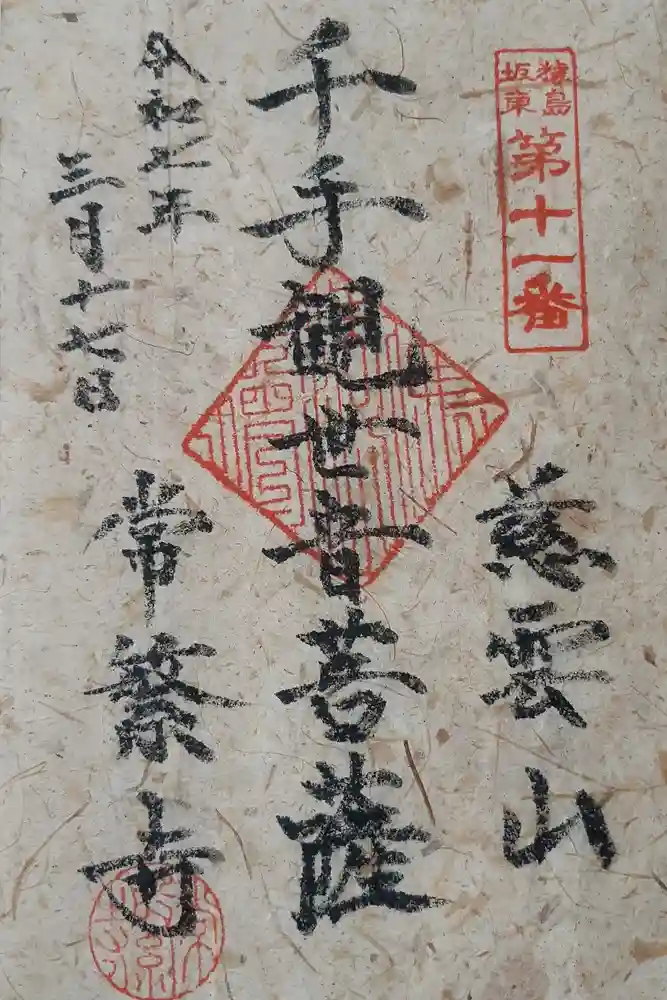 猿島
坂東
第十一番
慈雲山
千手観世音菩薩
令和七年
三月十七日
常繁寺